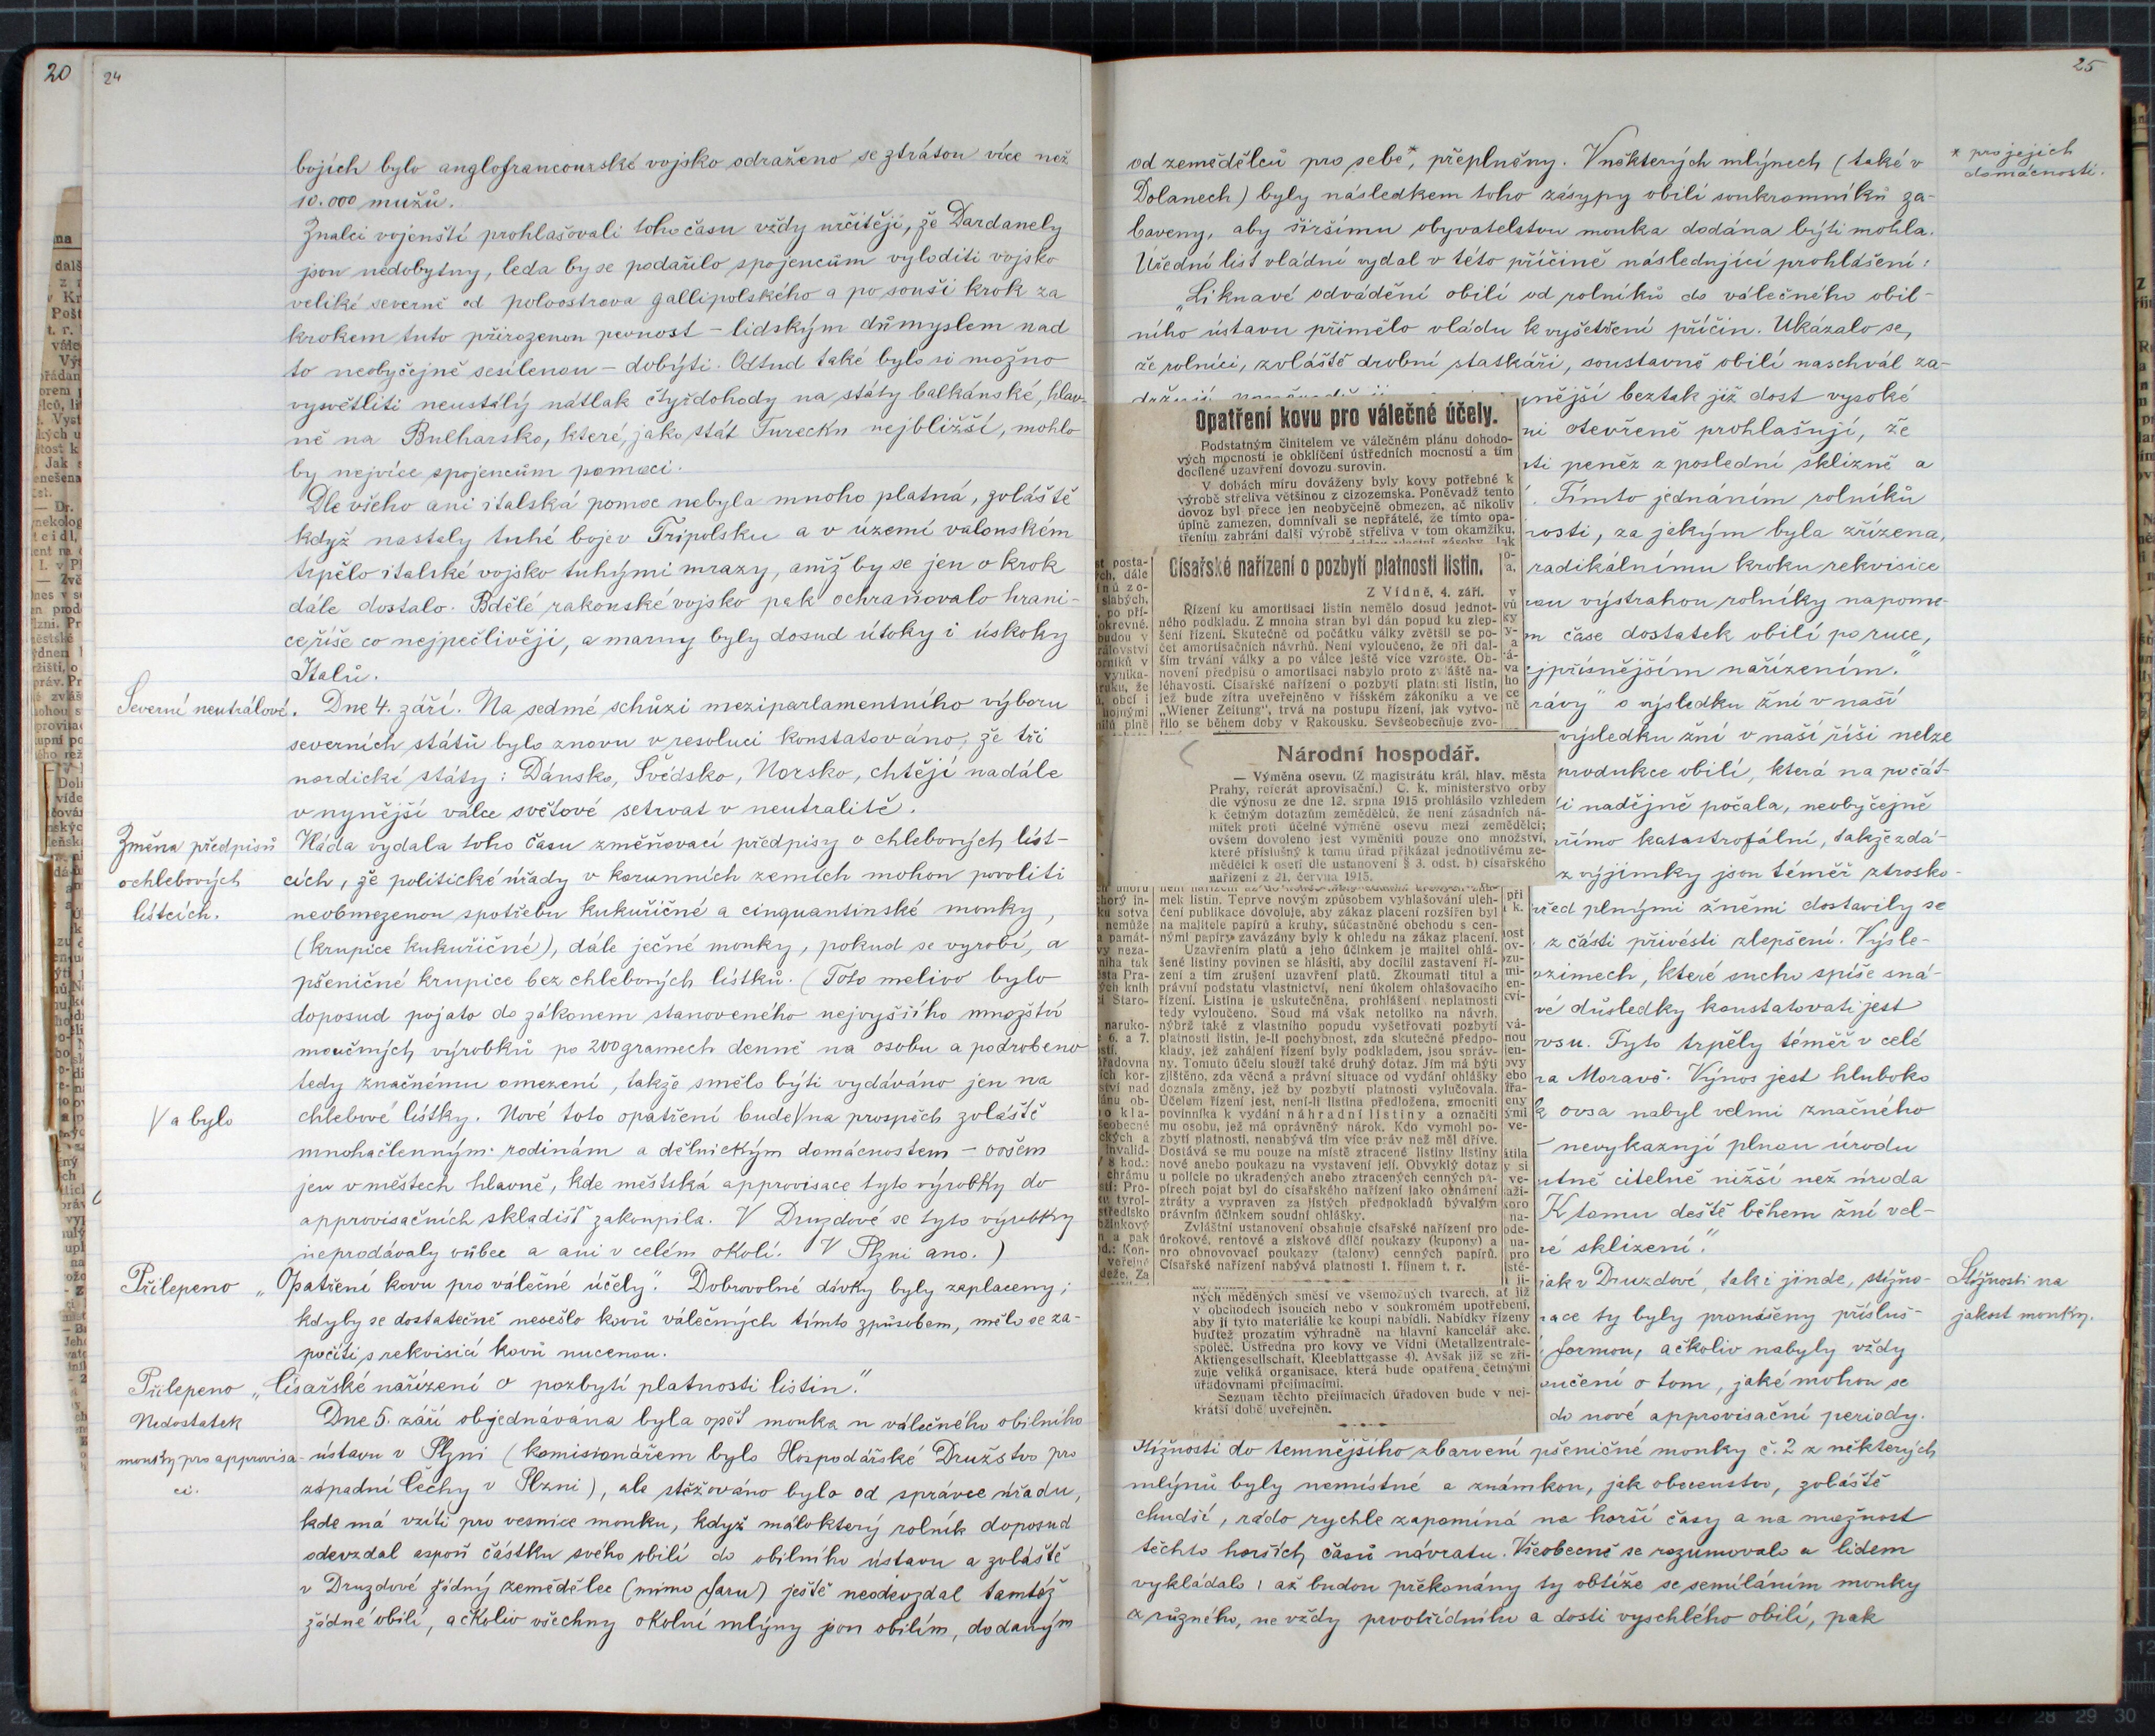 20
24
bojích bylo anglofrancouzské vojsko odraženo se ztrátou více než
10.000 mužů.
Znalci vojenští prohlašovali toho času vždy určitěji, že Dardanely
jsou nedobytny, leda by se podařilo spojencům vyloditi vojsko
veliké severně od poloostrova gallipolského a po souši krok za
krokem tuto přirozenou pevnost – lidským důmyslem nad
to neobyčejně sesílenou – dobýti. Odtud také bylo si možno
vysvětliti neustálý nátlak čtyřdohody na státy balkánské, hlav-
ně na Bulharsko, které, jako stát Turecku nejbližší, mohlo
by nejvíce spojencům pomoci.
Dle všeho ani italská pomoc nebyla mnoho platná, zvláště
když nastaly tuhé boje v Tripolsku a v území valonském
trpělo italské vojsko tuhými mrazy, aniž by se jen o krok
dále dostalo. Bdělé rakouské vojsko pak ochraňovalo hrani-
ce říše co nejpečlivěji, a marny byly dosud útoky i úskoky
Italů.
Severní neutrálové. Dne 4. září. Na sedmé schůzi meziparlamentního výboru
severních států bylo znovu v resoluci konstatováno, že tři
nordické státy: Dánsko, Švédsko, Norsko, chtějí nadále
v nynější válce světové setrvat v neutralitě.
Změna předpisů
o chlebových
lístcích.
Vláda vydala toho času změňovací předpisy o chlebových líst-
cích, že politické úřady v korunních zemích mohou povoliti
neobmezenou spotřebu kukuřičné a cinquantinské mouky,
(krupice kukuřičné), dále ječné mouky, pokud se vyrobí, a
pšeničné krupice bez chlebových lístků. (Toto melivo bylo
doposud pojato do zákonem stanoveného nejvyššího množství
moučných výrobků po 200 gramech denně na osobu a podrobeno
tedy značnému omezení, takže smělo býti vydáváno jen na
V a bylo
chlebové lístky. Nové toto opatření bude V na prospěch zvláště
mnohačlenným rodinám a dělnickým domácnostem – ovšem
jen v městech hlavně, kde městská approvisace tyto výrobky do
approvisačních skladišť zakoupila. V Druzdové se tyto výrobky
neprodávaly vůbec a ani v celém okolí. V Plzni ano.)
Přilepeno „Opatření kovu pro válečné účely“. Dobrovolné dávky byly zaplaceny;
kdyby se dostatečně nesešlo kovů válečných tímto způsobem, mělo se za-
počíti s rekvisicí kovů nucenou.
Přilepeno „Císařské nařízení o pozbytí platnosti listin.“
Nedostatek
mouky pro approvisa-
ci.
Dne 5. září objednávána byla opět mouka u válečného obilního
ústavu v Plzni (komisionářem bylo Hospodářské Družstvo pro
západní Čechy v Plzni), ale stěžováno bylo od správce úřadu,
kde má vzíti pro vesnice mouku, když málokterý rolník doposud
odevzdal aspoň částku svého obilí do obilního ústavu a zvláště
v Druzdové žádný zemědělec (mimo faru) ještě neodevzdal tamtéž
žádné obilí, ačkoliv všechny okolní mlýny jsou obilím, dodaným
25
od zemědělců pro sebe*, přeplněny. V některých mlýnech (také v
* pro jejich
domácnosti.
Dolanech) byly následkem toho zásypy obilí soukromníků za-
baveny, aby širšímu obyvatelstvu mouka dodána býti mohla.
Úřední list vládní vydal v této příčině následující prohlášení:
„Liknavé odvádění obilí od rolníků do válečného obil-
ního ústavu přimělo vládu k vyšetření příčin. Ukázalo se,
že rolníci, zvláště drobní statkáři, soustavně obilí naschvál za-
nější beztak již dost vysoké
ni otevřeně prohlašují, že
sti peněz z poslední sklizně a
. Tímto jednáním rolníků
nosti, za jakým byla zřízena,
radikálnímu kroku rekvisice
ou výstrahou rolníky napome-
m čase dostatek obilí po ruce,
ejpřísnějším nařízením.“
rávy“ o výsledku žní v naší
výsledku žní v naší říši nelze
produkce obilí, která na počát-
i nadějně počala, neobyčejně
římo katastrofální, takže zdá-
z výjimky jsou téměř ztrosko-
před plnými žněmi dostavily se
z části přivésti zlepšení. Výsle-
ozimech, které sucho spíše sná-
vé důsledky konstatovati jest
ovsu. Tyto trpěly téměř v celé
na Moravě. Výnos jest hluboko
k ovsa nabyl velmi značného
– nevykazují plnou úrodu
utně citelně nižší než úroda
K tomu deště během žní vel-
ré sklizení.“
jak v Druzdové, tak i jinde, stížno-
Stížnosti na
jakost mouky.
race ty byly pronášeny přísluš-
formou, ačkoliv nabyly vždy
oučení o tom, jaké mohou se
do nové approvisační periody.
Stížnosti do temnějšího zbarvení pšeničné mouky č. 2 z některých
mlýnů byly nemístné a známkou, jak obecenstvo, zvláště
chudší, rádo rychle zapomíná na horší časy a na možnost
těchto horších časů návratu. Všeobecně se rozumovalo a lidem
vykládalo: až budou překonány ty obtíže se semíláním mouky
z různého, ne vždy prvotřídního a dosti vyschlého obilí, pak
Opatření kovu pro válečné účely.
Podstatným činitelem ve válečném plánu dohodo-
vých mocností je obklíčení ústředních mocností a tím
docílené uzavření dovozu surovin.
V dobách míru dováženy byly kovy potřebné k
výrobě střeliva většinou z cizozemska. Poněvadž tento
dovoz byl přece jen neobyčejně obmezen, ač nikoliv
úplně zamezen, domnívali se nepřátelé, že tímto opa-
třením zabrání další výrobě střeliva v tom okamžiku,
Císařské nařízení o pozbytí platnosti listin.
Z Vídně, 4. září.
Řízení ku amortisaci listin nemělo dosud jednot-
ného podkladu. Z mnoha stran byl dán popud ku zlep-
šení řízení. Skutečně od počátku války zvětšil se po-
čet amortisačních návrhů. Není vyloučeno, že při dal-
ším trvání války a po válce ještě více vzroste. Ob-
novení předpisů o amortisaci nabylo proto zvláště na-
léhavosti. Císařské nařízení o pozbytí platnosti listin,
jež bude zítra uveřejněno v říšském zákoníku a ve
„Wiener Zeitung“, trvá na postupu řízení, jak vytvo-
řilo se během doby v Rakousku. Sevšeobecňuje zvo-
Národní hospodář.
— Výměna osevu. (Z magistrátu král. hlav. města
Prahy, referát aprovisační.) C. k. ministerstvo orby
dle výnosu ze dne 12. srpna 1915 prohlásilo vzhledem
k četným dotazům zemědělců, že není zásadních ná-
mitek proti účelné výměně osevu mezi zemědělci;
ovšem dovoleno jest vyměniti pouze ono množství,
které příslušný k tomu úřad přikázal jednotlivému ze-
mědělci k osetí dle ustanovení § 3. odst. b) císařského
nařízení z 21. června 1915.
mek listin. Teprve novým způsobem vyhlašování uleh-
čení publikace dovoluje, aby zákaz placení rozšířen byl
na majitele papírů a kruhy, súčastněné obchodu s cen-
nými papíry zavázány byly k ohledu na zákaz placení.
Uzavřením platů a jeho účinkem je majitel ohlá-
šené listiny povinen se hlásiti, aby docílil zastavení ří-
zení a tím zrušení uzavření platů. Zkoumati titul a
právní podstatu vlastnictví, není úkolem ohlašovacího
řízení. Listina je uskutečněna, prohlášení neplatnosti
tedy vyloučeno. Soud má však netoliko na návrh,
nýbrž také z vlastního popudu vyšetřovati pozbytí
platnosti listin, je-li pochybnost, zda skutečné předpo-
klady, jež zahájení řízení byly podkladem, jsou správ-
ny. Tomuto účelu slouží také druhý dotaz. Jím má býti
zjištěno, zda věcná a právní situace od vydání ohlášky
doznala změny, jež by pozbytí platnosti vylučovala.
Účelem řízení jest, není-li listina předložena, zmocniti
povinníka k vydání náhradní listiny a označiti
mu osobu, jež má oprávněný nárok. Kdo vymohl po-
zbytí platnosti, nenabývá tím více práv než měl dříve.
Dostává se mu pouze na místě ztracené listiny listiny
nové anebo poukazu na vystavení její. Obvyklý dotaz
u policie po ukradených anebo ztracených cenných pa-
pírech pojat byl do císařského nařízení jako oznámení
ztráty a vypraven za jistých předpokladů bývalým
právním účinkem soudní ohlášky.
Zvláštní ustanovení obsahuje císařské nařízení pro
úrokové, rentové a ziskové dílčí poukazy (kupony) a
pro obnovovací poukazy (talony) cenných papírů.
Císařské nařízení nabývá platnosti 1. říjnem t. r.
ných měděných směsí ve všemožných tvarech, ať již
v obchodech jsoucích nebo v soukromém upotřebení,
aby jí tyto materiálie ke koupi nabídli. Nabídky řízeny
buďtež prozatím výhradně na hlavní kancelář akc.
společ. Ústředna pro kovy ve Vídni (Metallzentrale-
Aktiengesellschaft, Kleeblattgasse 4). Avšak již se zři-
zuje veliká organisace, která bude opatřena četnými
úřadovnami přejímacími.
Seznam těchto přejímacích úřadoven bude v nej-
kratší době uveřejněn.